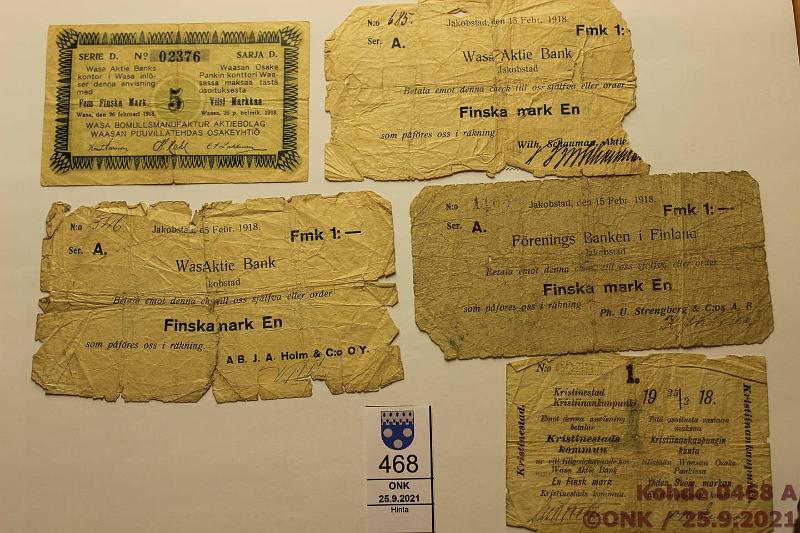 SERIE D. No 02376 SARJA D.
Wasa Aktie Banks
kontor i Wasa inlö-
ser denna anvisning
med
Fem Finska Mark
Wasa, den 26 februari 1918.
Waasan Osake
Pankin konttori Waa-
sassa maksaa tästä
osoituksesta
Viisi Markkaa
Waasa, 26 p. helmik. 1918.
5
WASA BOMULLSMANUFAKTUR AKTIEBOLAG
WAASAN PUUVILLATEHDAS OSAKEYHTIÖ
N:o 685. Jakobstad, den 15 Febr. 1918.
Ser. A. Fmk 1:
Wasa Aktie Bank
Jakobstad
Betala emot denna check till oss själfva eller order
Finska mark En
som påföres oss i räkning.
Wilh. Schauman, Aktie
N:o 546 Jakobstad, d 5 Febr. 1918.
Ser. A. Fmk 1:—
Wasa Aktie Bank
kobstad
Betala emot denna check till oss själfva eller order
Finska mark En
som påföres oss i räkning.
A B. J. A. Holm & C:o O Y.
N:o Jakobstad, den 15 Febr. 1918.
Ser. A. Fmk 1:—
Förenings Banken i Finland
Jakobstad
Betala emot denna check till oss själfva eller order
Finska mark En
som påföres oss i räkning.
Ph. U. Strengberg & C:os A. B.
N:o 1.
Kristinestad
Kristiinankaupunki 19 25/2 18.
Kristinestad.
Emot denna anvisning
betalar
Kristinestads
kommun
ur sitt tillgodohavande hos
Wasa Aktie Bank
En Finsk mark
Kristinestads kommun.
Tätä osoitusta vastaan
maksaa
Kristiinankaupungin
kunta
tilistään Waasan Osake
Pankissa
Yhden Suom. markan.
Kristiinankaupunki
468
ONK
25.9.2021
Hinta
Kohde 0468 A
©ONK / 25.9.2021